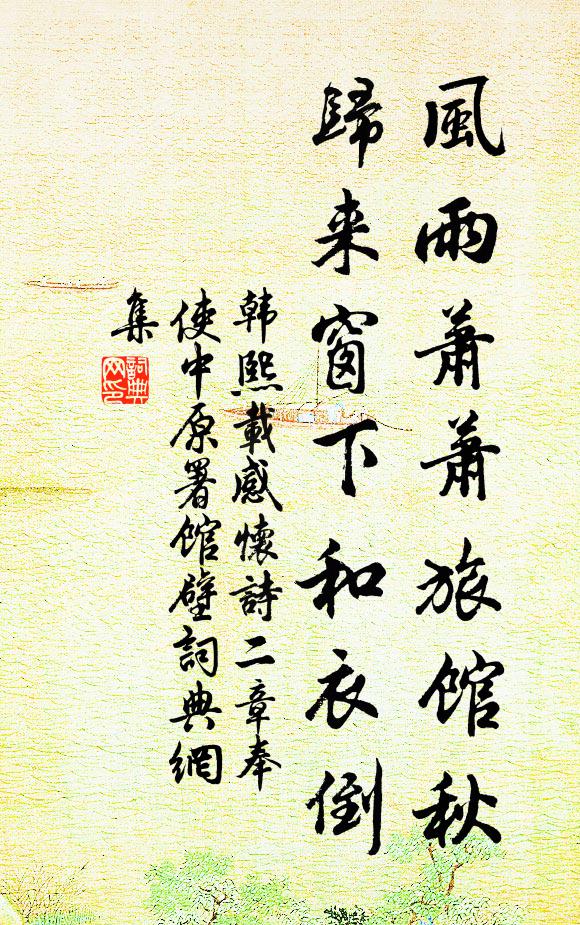 風雨蕭蕭旅館秋
歸来窗下和衣倒
韩熙載感懷詩二章奉
使中原署館壁詞典網
集
詞典
网印